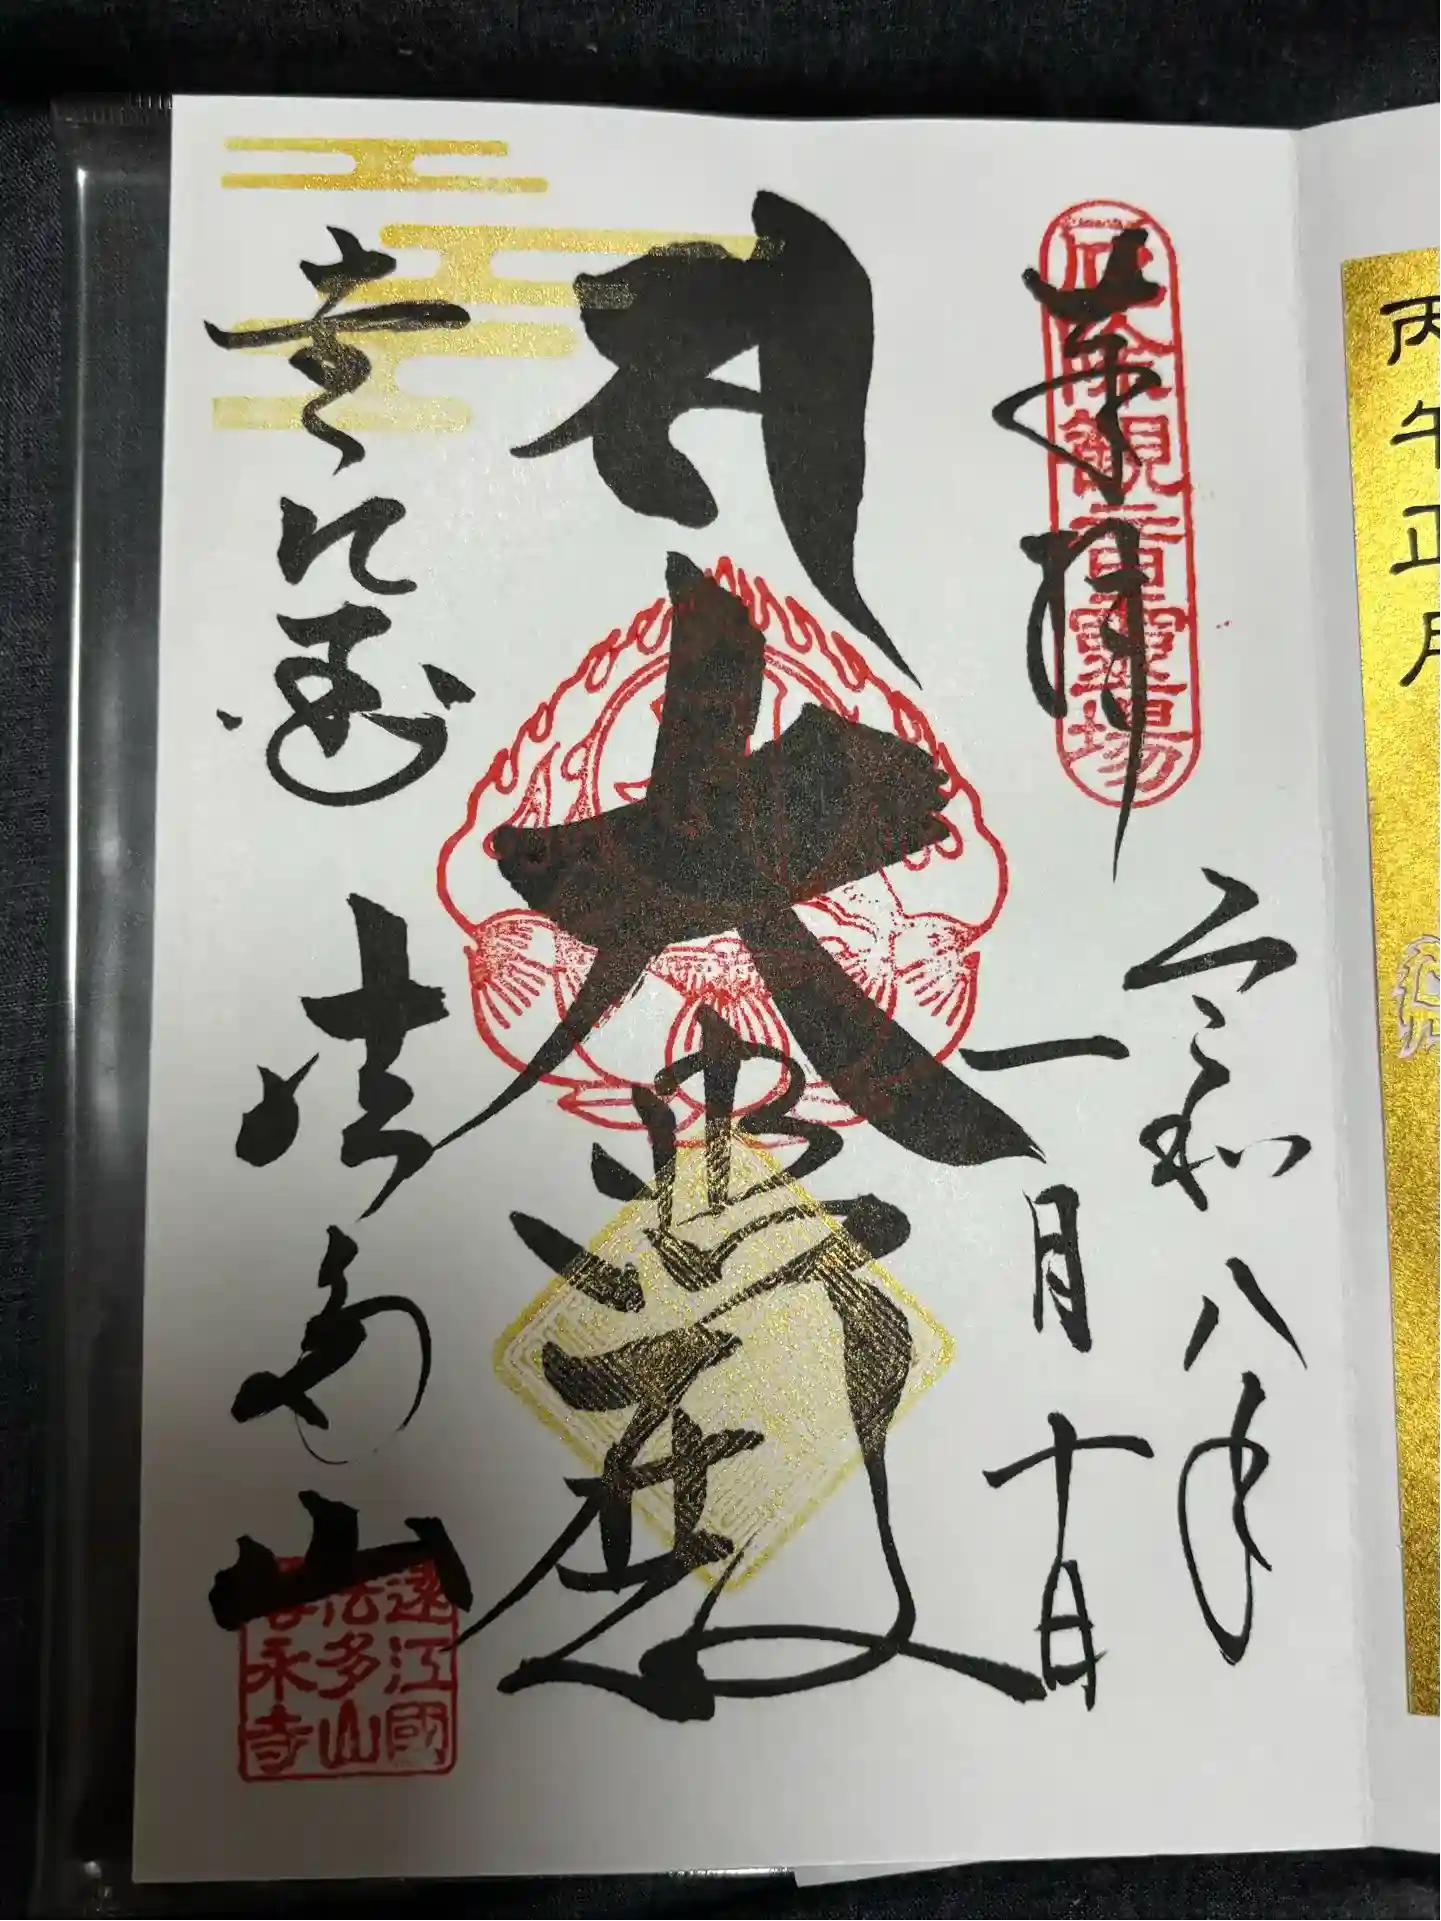 丙午正月
厄除観音霊場
奉拝
令和八年
一月十日
大悲殿
遠江國 法多山
遠江國
法多山
尊永寺